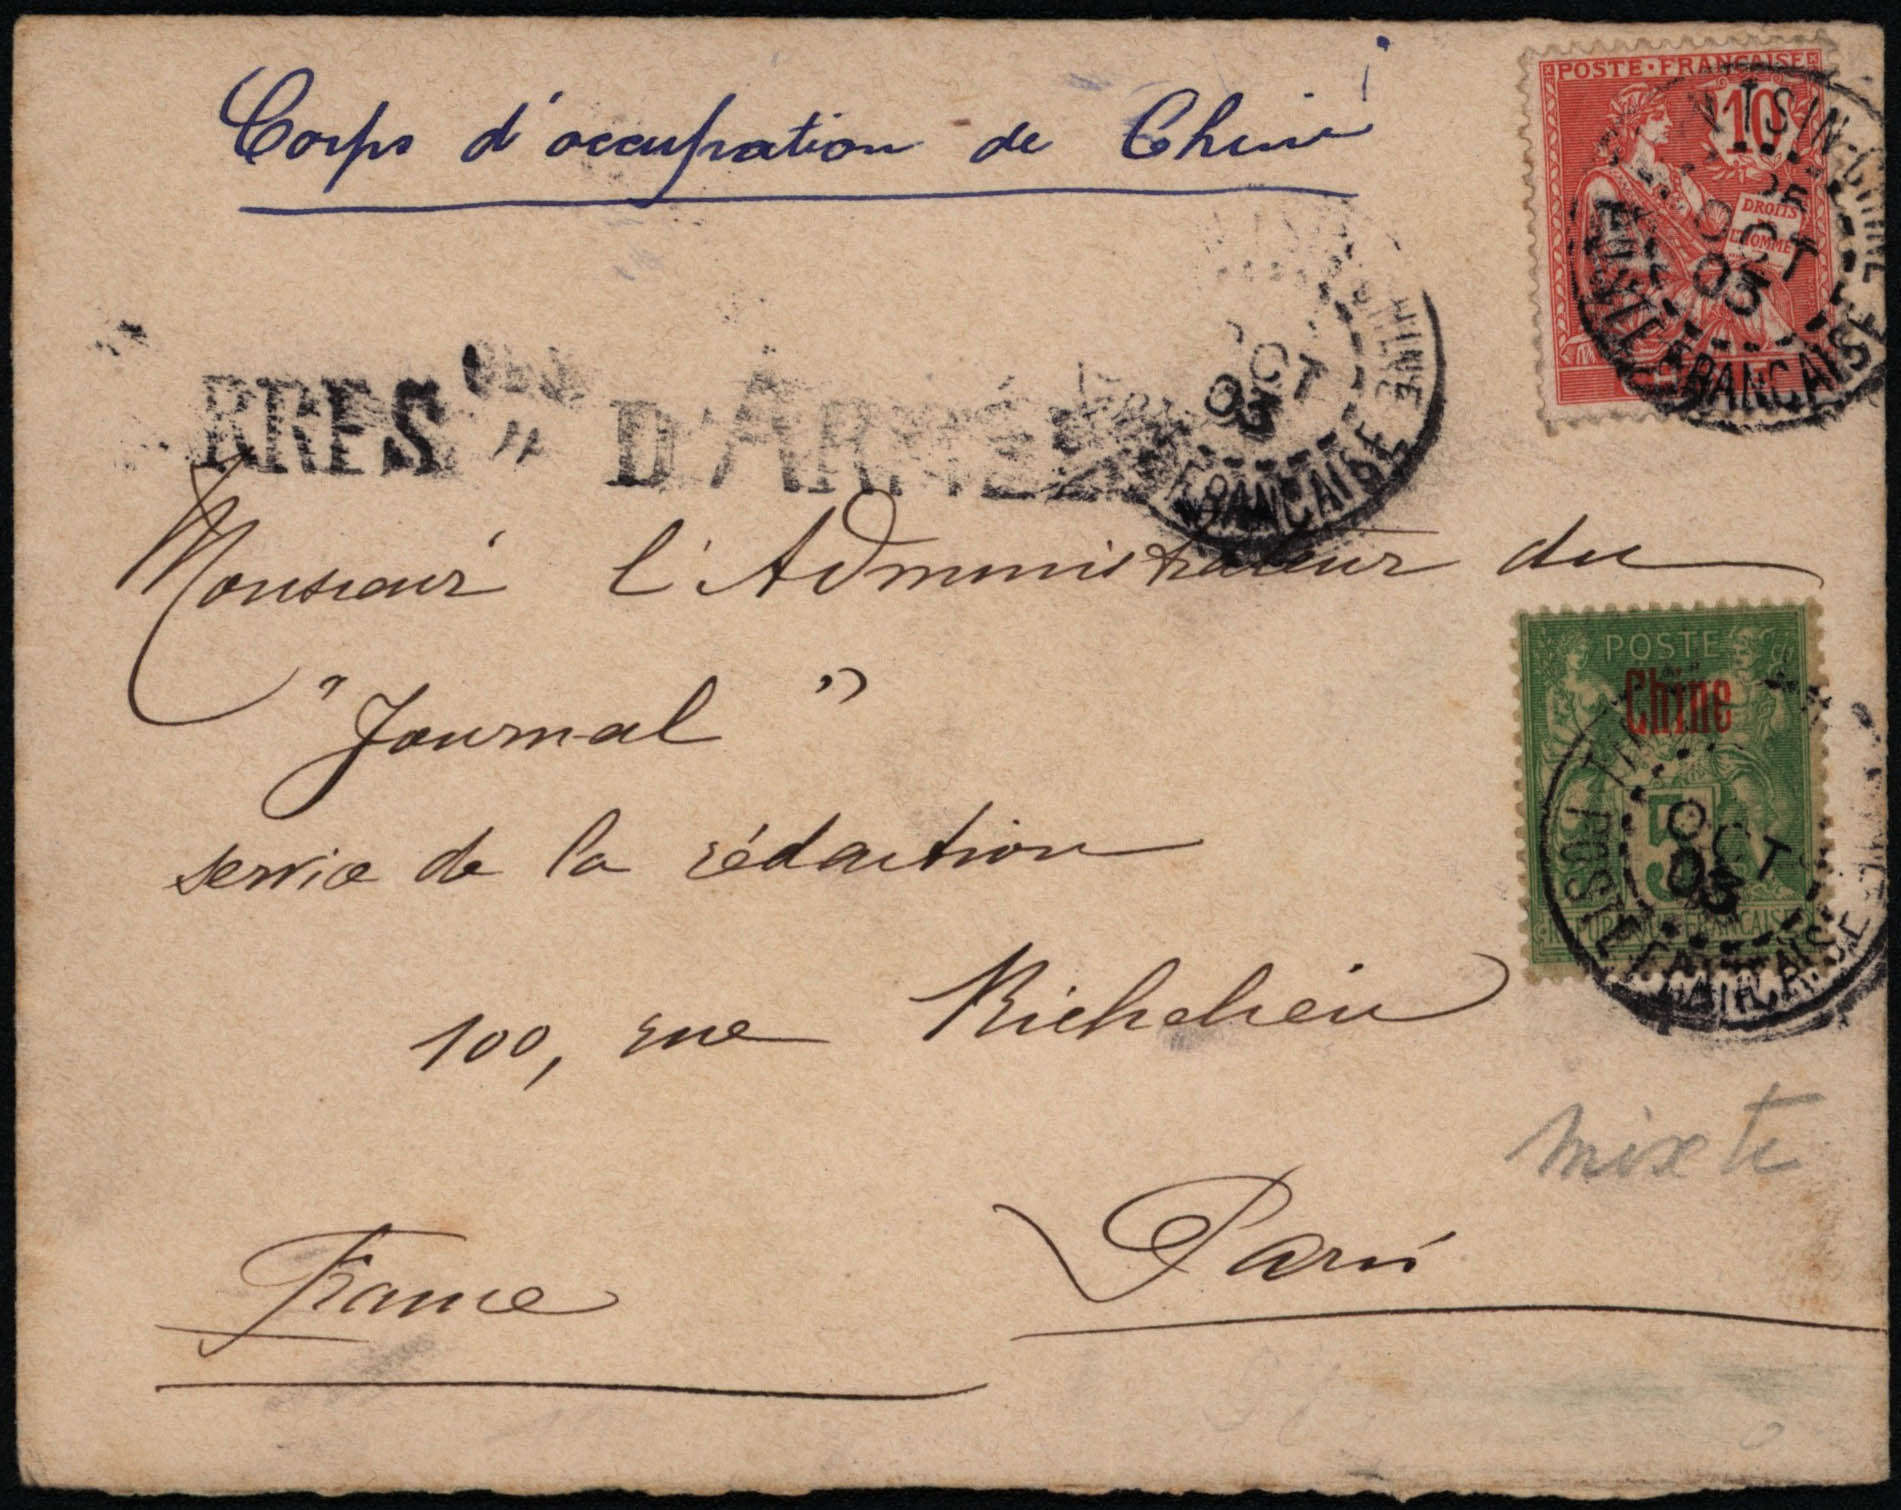 Corps d'occupation de Chine
POSTE · FRANÇAISE
10
DROITS
HOMME
TSIN-CHINE
25
OCT
03
POSTE FRANCAISE
CHINE
OCT
03
FRANCAISE
RRES " D'ARMÉE
Monsieur l'Administrateur du
"Journal"
service de la rédaction
100, rue Richelieu
Paris
France
POSTE
Chine
5
REPUBLIQUE FRANÇAISE
OCT
03
POSTE FRANCAISE
mixte